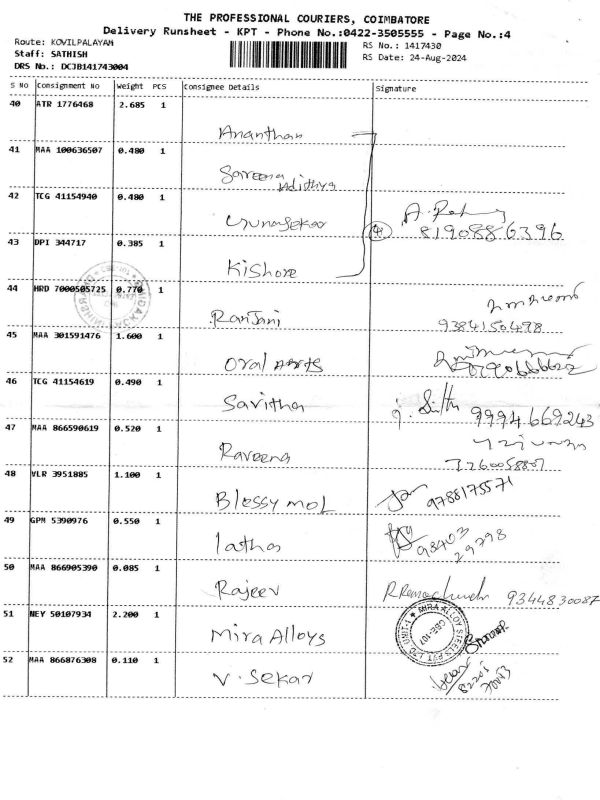 THE PROFESSIONAL COURIERS, COIMBATORE
Delivery Runsheet - KPT - Phone No.:0422-3505555 - Page No.:4
Route: KOVILPALAYAM
Staff: SATHISH
DRS No.: DCJB141743004
RS No.: 1417430
RS Date: 24-Aug-2024
S No Consignment No Weight PCS Consignee Details Signature
40 ATR 1776468 2.685 1 Ananthan
41 MAA 100636507 0.480 1 Sareena Adithya
42 TCG 41154940 0.480 1 Gunasekar
8190886396
43 DPI 344717 0.385 1 Kishore
44 HRD 7000505725 0.770 1 Ranjani
9384150478
45 MAA 301591476 1.600 1 Oral Arts
46 TCG 41154619 0.490 1 Savitha
9994669243
47 MAA 866590619 0.520 1 Raveena
48 VLR 3951885 1.100 1 Blessy mol 9788175571
49 GPM 5390976 0.550 1 latha 98403
29798
50 MAA 866905390 0.085 1 Rajeev 9344830087
51 NEY 50107934 2.200 1 Mira Alloys
MIRA ALLOY STEELS PVT LTD UNIT-1
CBE-107
52 MAA 866876308 0.110 1 V. Sekar